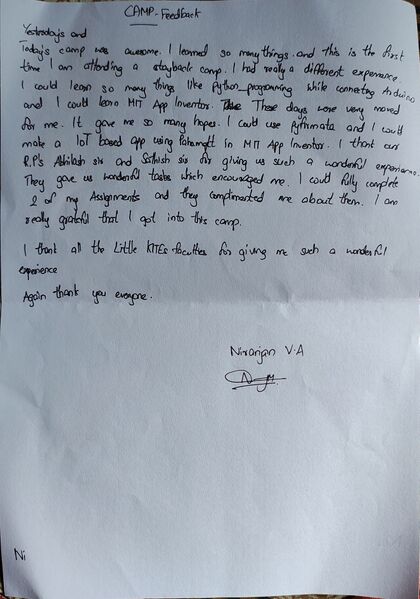 CAMP - Feedback
Yesterday's and
Today's camp was awesome. I learned so many things. and this is the first
time I am attending a stayback camp. I had really a different experience.
I could learn so many things like Python programming while connecting Arduino
and I could learn MIT App Inventor. These days were very moved
for me. It gave me so many hopes. I could use Pyfirmata and I could
make a IoT based app using Pahomqtt in MIT App Inventor. I thank our
R.P's Abhilash sir and Sathish sir for giving us such a wonderful experience.
They gave us wonderful tasks which encouraged me. I could fully complete
2 of my Assignments and they complimented me about them. I am
really grateful that I got into this camp.
I thank all the Little KITEs faculties for giving me such a wonderful
experience
Again thank you everyone.
Niranjan V.A
Ni